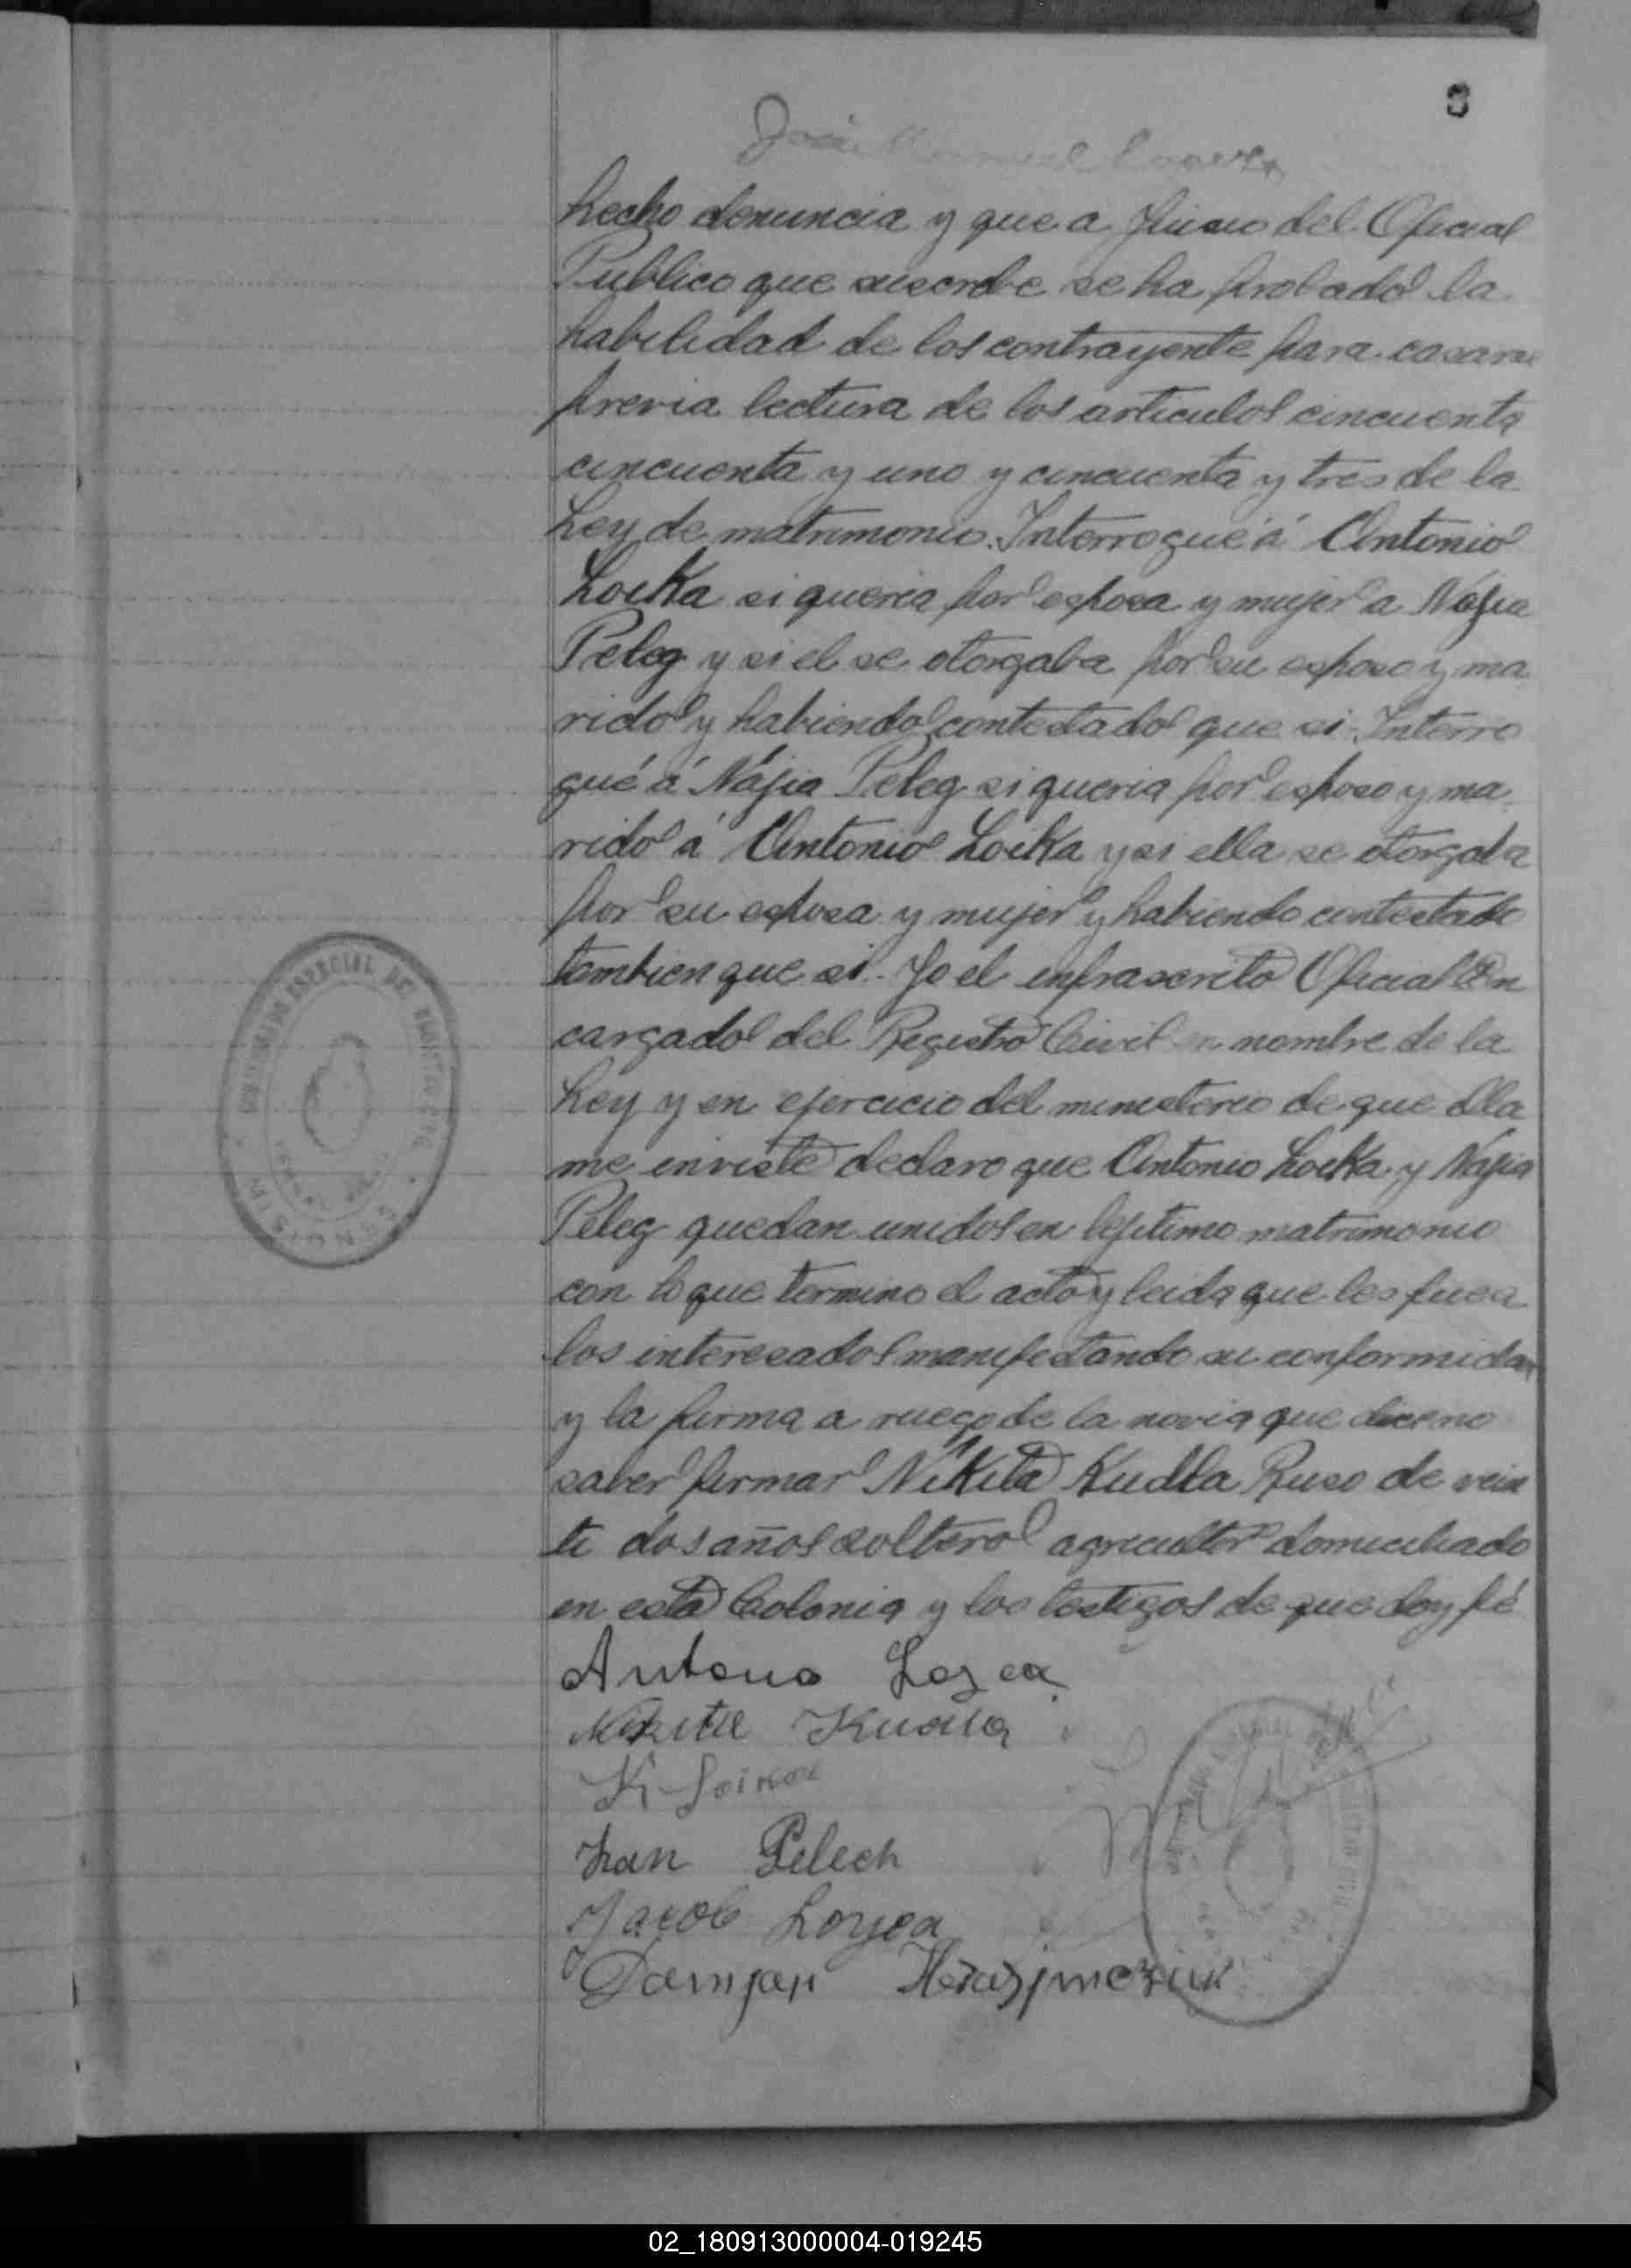 8
José Manuel
hecho denuncia y que a Juicio del Oficial
Publico que suscribe se ha probado la
habilidad de los contrayente para casarse
previa lectura de los articulos cincuenta
cincuenta y uno y cincuenta y tres de la
Ley de matrimonio. Interrogué á Antonio
Loika si queria por esposa y mujer a Nájia
Peleg y si el se otorgaba por su esposo y ma
rido y habiendo contestado que si. Interro
gué á Nájia Peleg si queria por esposo y ma
rido á Antonio Loika y si ella se otorgaba
por su esposa y mujer y habiendo contestado
tambien que si. Yo el infrascrito Oficial En
cargado del Registro Civil en nombre de la
Ley y en ejercicio del ministerio de que ella
me inviste declaro que Antonio Loika y Nájia
Peleg quedan unidos en lejitimo matrimonio
con lo que termino el acto y leida que les fue a
los interesados manifestando su conformidad
y la firma a ruego de la novia que dice no
saber firmar Nikita Kudla Ruso de vein
te dos años soltero agricultor domiciliado
en esta Colonia y los testigos de que doy fé
Antono Lozea
Nikita Kudla
Iwan Pelech
Jacob Loyea
Damjan
02_180913000004-019245